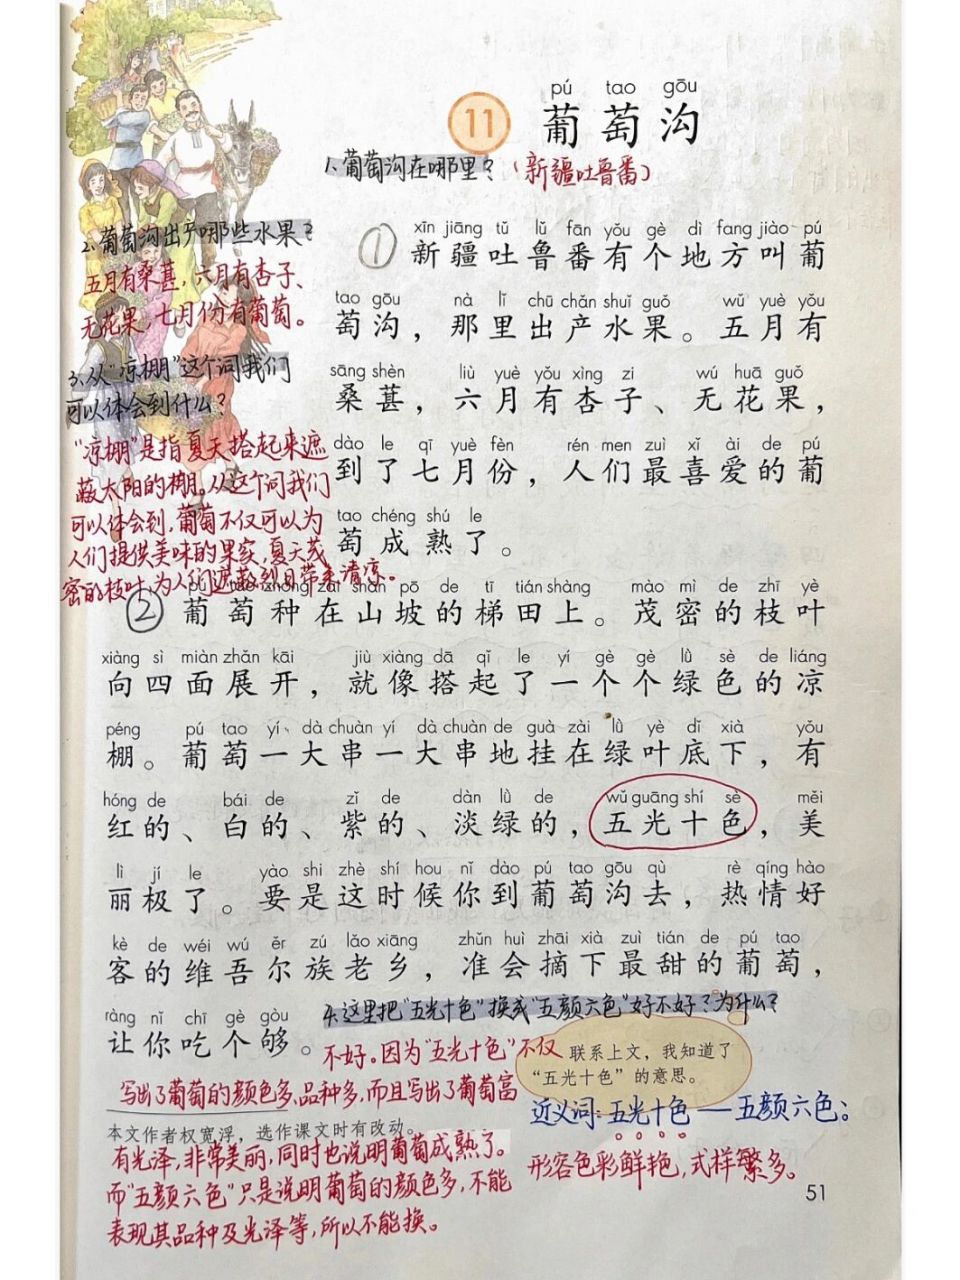 pú tao gōu
11 葡萄沟
1.葡萄沟在哪里？（新疆吐鲁番）
2.葡萄沟出产哪些水果？
五月有桑葚，六月有杏子、
无花果，七月份有葡萄。
3.从“凉棚”这个词我们
可以体会到什么？
“凉棚”是指夏天搭起来遮
蔽太阳的棚。从这个词我们
可以体会到，葡萄不仅可以为
人们提供美味的果实，夏天茂
密的枝叶为人们遮蔽烈日带来清凉。
①
xīn jiāng tǔ lǔ fān yǒu gè dì fang jiào pú
新疆吐鲁番有个地方叫葡
tao gōu nà lǐ chū chǎn shuǐ guǒ wǔ yuè yǒu
萄沟，那里出产水果。五月有
sāng shèn liù yuè yǒu xìng zi wú huā guǒ
桑葚，六月有杏子、无花果，
dào le qī yuè fèn rén men zuì xǐ ài de pú
到了七月份，人们最喜爱的葡
tao chéng shú le
萄成熟了。
②
pú tao zhòng zài shān pō de tī tián shàng mào mì de zhī yè
葡萄种在山坡的梯田上。茂密的枝叶
xiàng sì miàn zhǎn kāi jiù xiàng dā qǐ le yí gè gè lǜ sè de liáng
向四面展开，就像搭起了一个个绿色的凉
péng pú tao yí dà chuàn yí dà chuàn de guà zài lǜ yè dǐ xià yǒu
棚。葡萄一大串一大串地挂在绿叶底下，有
hóng de bái de zǐ de dàn lǜ de wǔ guāng shí sè měi
红的、白的、紫的、淡绿的，五光十色，美
lì jí le yào shi zhè shí hou nǐ dào pú tao gōu qù rè qíng hào
丽极了。要是这时候你到葡萄沟去，热情好
kè de wéi wú ěr zú lǎo xiāng zhǔn huì zhāi xià zuì tián de pú tao
客的维吾尔族老乡，准会摘下最甜的葡萄，
ràng nǐ chī gè gòu
让你吃个够。
4.这里把“五光十色”换成“五颜六色”好不好？为什么？
不好。因为“五光十色”不仅
写出了葡萄的颜色多，品种多，而且写出了葡萄富
联系上文，我知道了
“五光十色”的意思。
近义词：五光十色——五颜六色；
本文作者权宽浮，选作课文时有改动。
有光泽，非常美丽，同时也说明葡萄成熟了。
而“五颜六色”只是说明葡萄的颜色多，不能
表现其品种及光泽等，所以不能换。
形容色彩鲜艳，式样繁多。
51